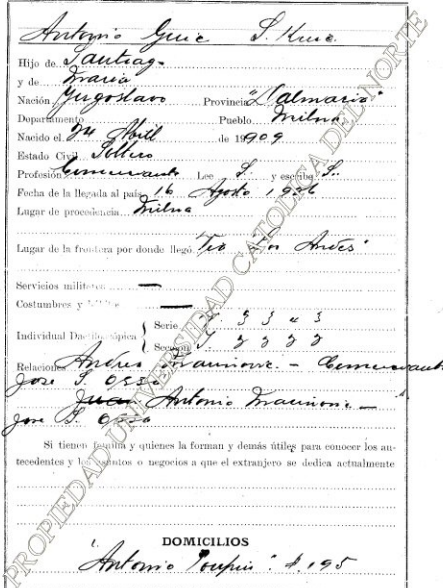 Antonio Guic S. Kuic
Hijo de Santiago
y de Maria
Nación Yugoslavo Provincia "Dalmacia"
Departamento Pueblo Milna
Nacido el 24 Abril de 1909
Estado Civil Soltero
Profesión Comerciante Lee S. y escribe S.
Fecha de la llegada al país 16 Agosto 1926
Lugar de procedencia Milna
Lugar de la frontera por donde llegó "Los Andes"
Servicios militares —
Costumbres y —
Individual Dactiloscópica Serie 3 3 4 3
Sección 3 2 2 2
Relaciones Andres — Comerciante
Jose S.
Juan Antonio —
Jose S.
Si tienen familia y quienes la forman y demás útiles para conocer los an-
tecedentes y los asuntos o negocios a que el extranjero se dedica actualmente
DOMICILIOS
Antonio 195
PROPIEDAD UNIVERSIDAD CATOLICA DEL NORTE